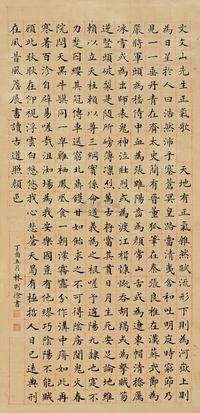 文文山先生正氣歌 天地有正氣雜然賦流形下則為河嶽上則
為日星於人曰浩然沛乎塞蒼冥皇路當清夷含和吐明庭時窮節乃
見一一垂丹青在齊太史簡在晉董狐筆在秦張良椎在漢蘇武節為
嚴將軍頭為嵇侍中血為張睢陽齒為顏常山舌或為遼東帽清操厲
冰雪或為出師表鬼神泣壯烈或為渡江楫慷慨吞胡羯或為擊賊笏
逆豎頭破裂是氣所磅礴凜烈萬古存當其貫日月生死安足論地維
賴以立天柱賴以尊三綱實係命道義為之根嗟予遘陽九隸也實不
力楚囚纓其冠傳車送窮北鼎鑊甘如飴求之不可得陰房闃鬼火春
院閟天黑牛驥同一皁雞栖鳳凰食一朝濛霧露分作溝中瘠如此再
寒暑百沴自辟易嗟哉沮洳場為我安樂國豈有他繆巧陰陽不能賊
顧此耿耿在仰視浮雲白悠悠我心悲蒼天曷有極哲人日已遠典刑
在夙昔風簷展書讀古道照顏色
丁酉五月林則徐書